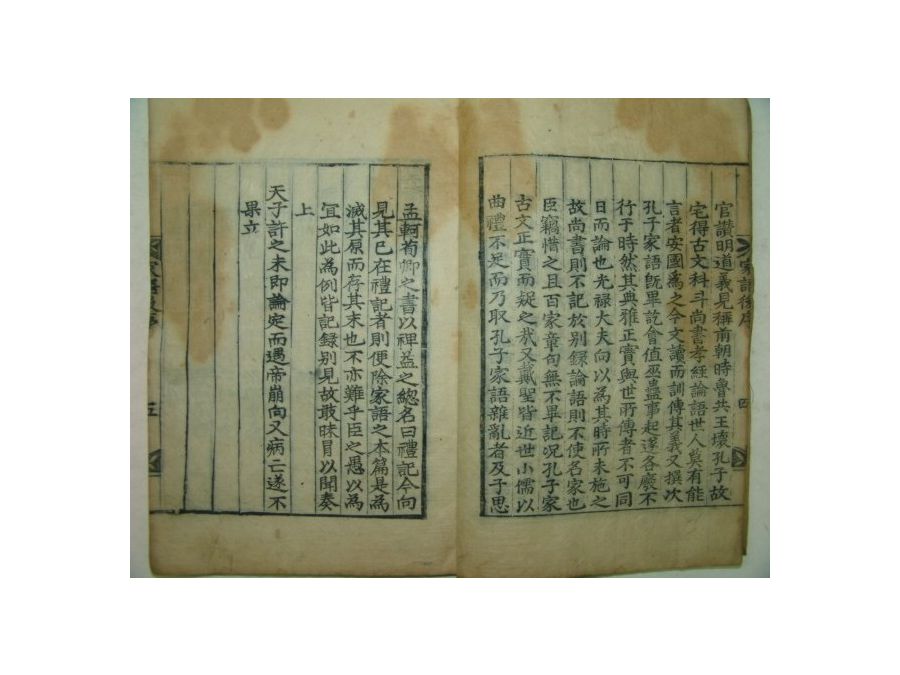 家語後序
四
官讚明道義見稱前朝時魯共王壞孔子故
宅得古文科斗尚書孝經論語世人莫有能
言者安國爲之今文讀而訓傳其義又撰次
孔子家語旣畢訖會值巫蠱事起遂各廢不
行于時然其典雅正實與世所傳者不可同
日而論也光禄大夫向以為其時所未施之
故尚書則不記於别錄論語則不使名家也
臣竊惜之且百家章句無不畢記况孔子家
古文正實而疑之哉又戴聖皆近世小儒以
曲禮不足而乃取孔子家語雜亂者及子思
孟軻荀卿之書以裨益之緫名曰禮記今向
見其已在禮記者則便除家語之本篇是為
滅其原而存其末也不亦難乎臣之愚以為
冝如此為例皆記録别見故敢昧冒以聞奏
上
天子許之未即論定而遇帝崩向又病亡遂不
果立
五